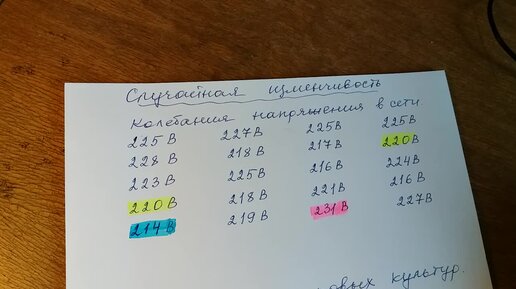 Случайная изменчивость
Колебания напряжения в сети
225 В 227 В 225 В 225 В
228 В 218 В 217 В 220 В
223 В 225 В 216 В 224 В
220 В 218 В 221 В 216 В
214 В 219 В 231 В 227 В
культур.